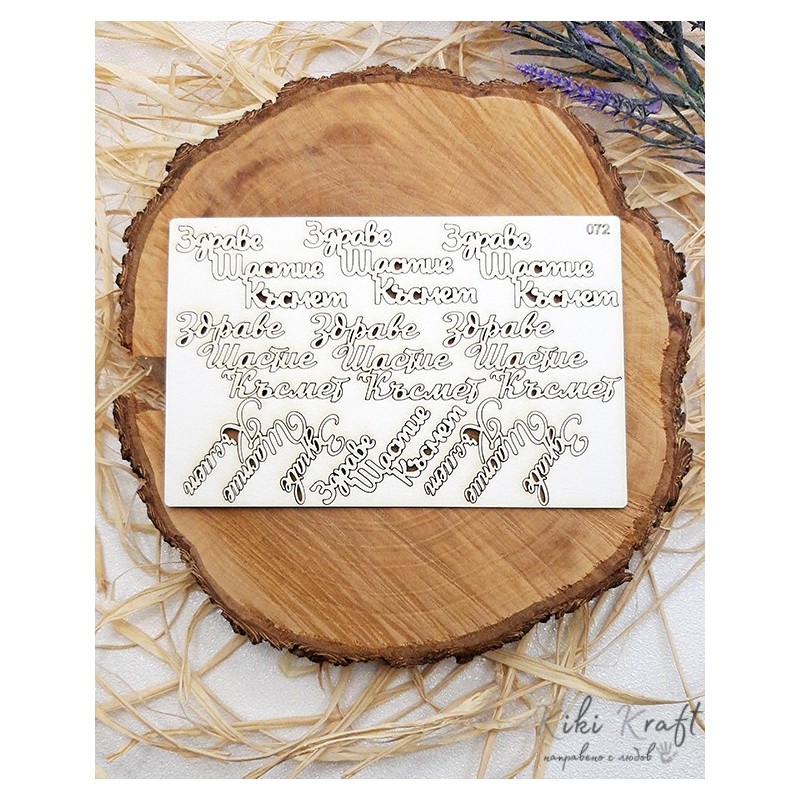 072
Здраве Здраве Здраве
Щастие Щастие Щастие
Късмет Късмет Късмет
Здраве Здраве Здраве
Щастие Щастие Щастие
Късмет Късмет Късмет
Късмет Щастие Здраве
Здраве Щастие Късмет
Късмет Щастие Здраве
Kiki Kraft
направено с любов